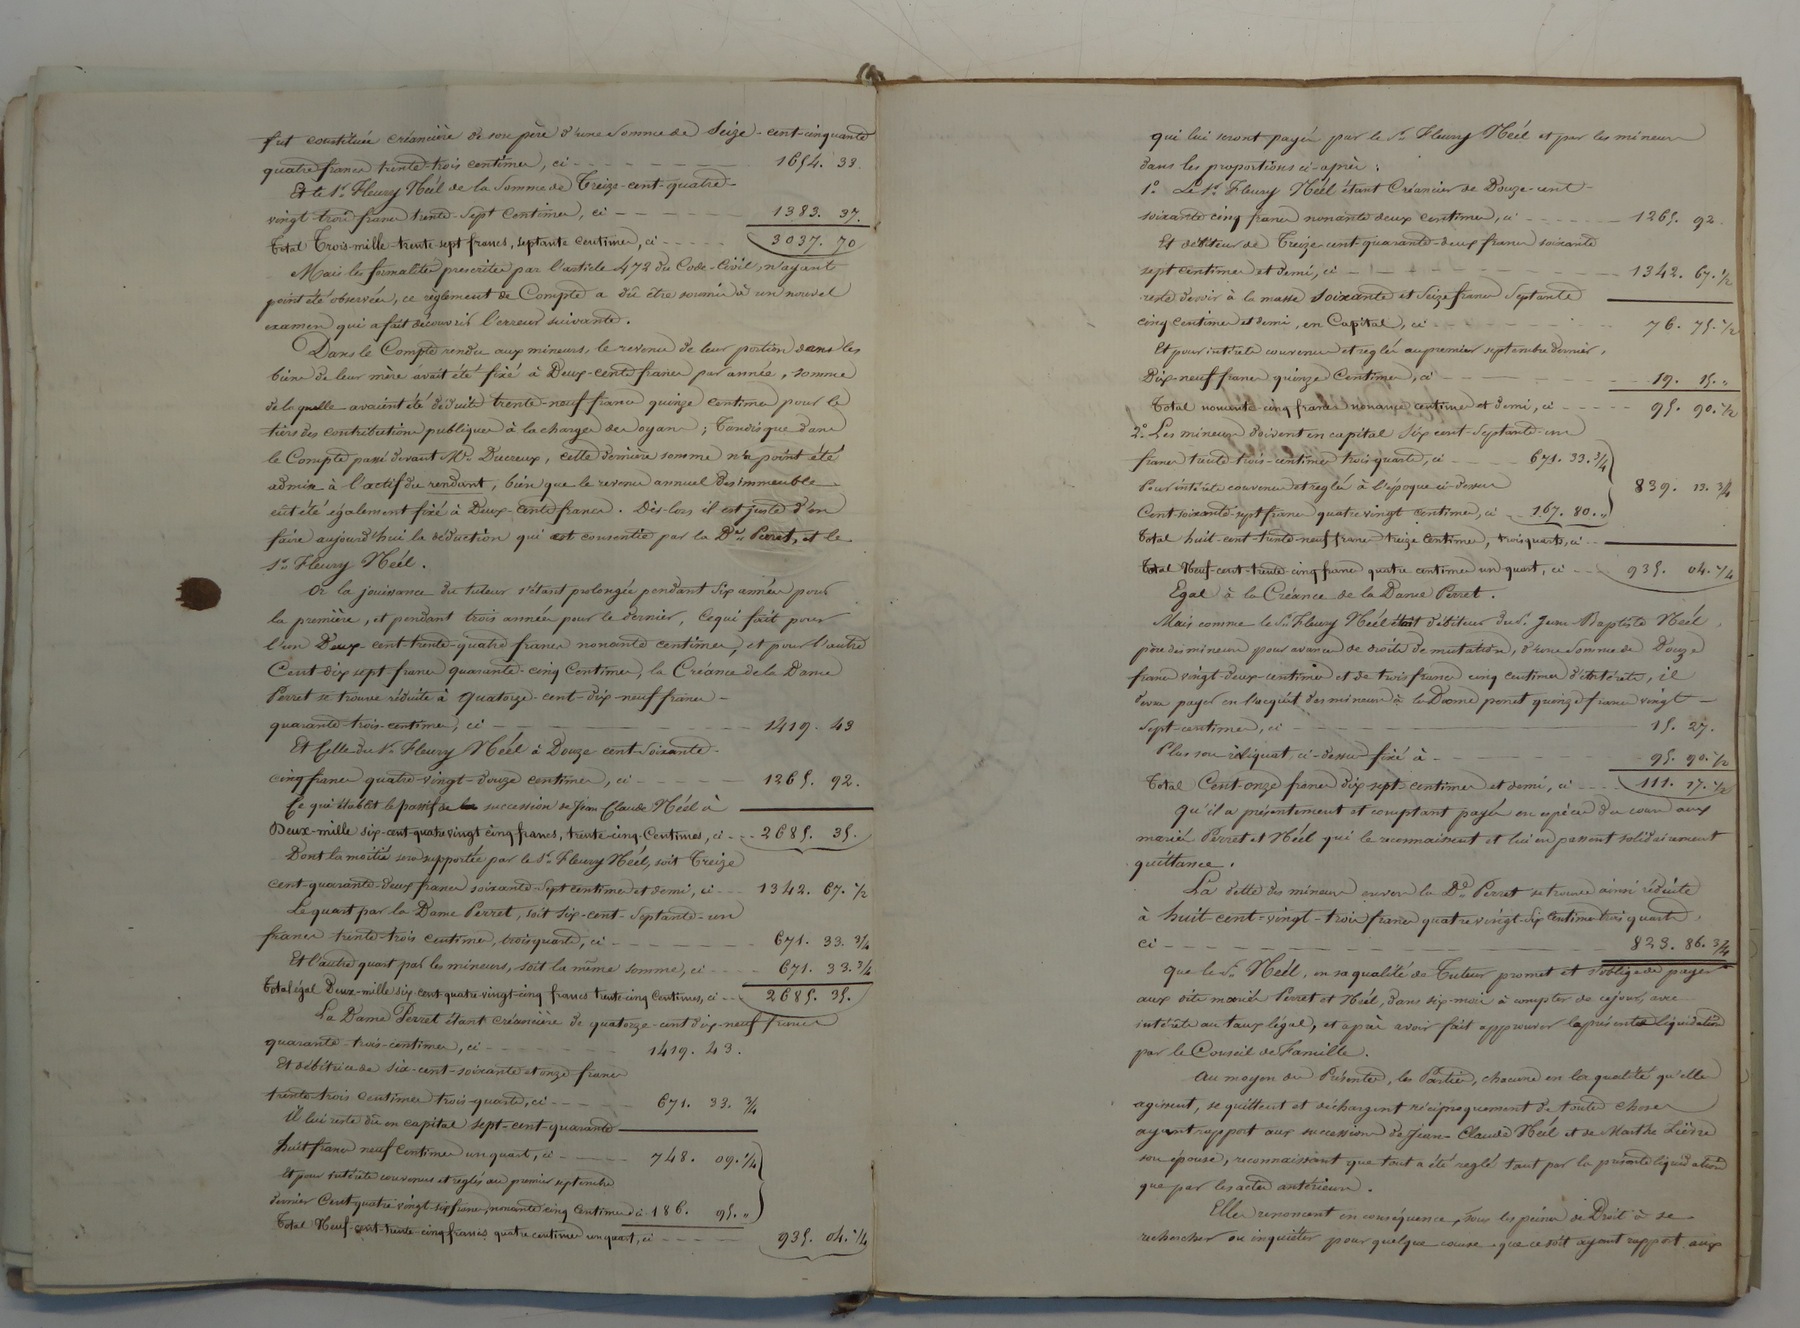 fut constituée créancière de son père d'une somme de Seize-cent-cinquante
quatre francs trente-trois centimes, ci - - - 1654. 33.
Et le Sr. Fleury Néel de la somme de Treize-cent-quatre-
vingt-trois francs trente-sept centimes, ci - - - 1383. 37.
Total Trois-mille-trente-sept francs, septante centimes, ci - - - 3037. 70
Mais les formalités prescrites par l'article 472 du Code-Civil, n'ayant
point été observées, ce règlement de Compte a dû être soumis à un nouvel
examen qui a fait découvrir l'erreur suivante.
Dans le Compte rendu aux mineurs, le revenu de leur portion dans les
biens de leur mère avait été fixé à Deux-cents francs par année, somme
de laquelle avaient été déduits trente-neuf francs quinze centimes pour le
tiers des contributions publiques à la charge des oyans ; Tandis que dans
le Compte passé devant Me. Ducreux, cette dernière somme n'a point été
admise à l'actif du rendant, bien que le revenu annuel des immeubles
eut été également fixé à Deux-cents francs. Dès-lors il est juste d'en
faire aujourd'hui la déduction qui est consentie par la De. Perret, et le
Sr. Fleury Néel.
Or la jouissance du tuteur s'étant prolongée pendant six années pour
la première, et pendant trois années pour le dernier, ce qui fait pour
l'un Deux-cent-trente-quatre francs nonante centimes, et pour l'autre
Cent-dix-sept francs quarante-cinq centimes, la Créance de la Dame
Perret se trouve réduite à quatorze-cent-dix-neuf francs -
quarante-trois-centimes, ci - - - 1419. 43
Et Celle du Sr. Fleury Néel à Douze cent-soixante-
cinq francs quatre-vingt-douze centimes, ci - - - 1265. 92.
Ce qui établit le passif de la succession de Jean Claude Néel à
Deux-mille six-cent-quatre vingt cinq francs, trente-cinq Centimes, ci - - 2685. 35.
Dont la moitié sera supportée par le Sr. Fleury Néel, soit Treize
cent-quarante-deux francs soixante-sept centimes et demi, ci - - - 1342. 67. 1/2
Le quart par la Dame Perret, soit six-cent-septante-un
francs trente-trois centimes, trois quarts, ci - - - 671. 33. 3/4
Et l'autre quart par les mineurs, soit la même somme, ci - - - 671. 33. 3/4
Total égal Deux-mille six-cent quatre-vingt-cinq francs trente-cinq centimes, ci - - 2685. 35.
La Dame Perret étant créancière de quatorze-cent dix-neuf francs
quarante-trois-centimes, ci - - - 1419. 43.
Et débitrice de six-cent-soixante et onze francs
trente-trois centimes trois-quarts, ci - - - 671. 33. 3/4
Il lui reste dû en capital sept-cent-quarante
huit francs neuf centimes un quart, ci - - - 748. 09. 1/4
Et pour intérêts convenus et réglés au premier septembre
dernier Cent quatre vingt-six francs, nonante cinq centimes ci - 186. 95. "
Total Neuf-cent-trente cinq francs quatre centimes un quart, ci - - - 935. 04. 1/4
qui lui seront payés par le Sr. Fleury Néel et par les mineurs
dans les proportions ci-après :
1°. Le Sr. Fleury Néel étant Créancier de Douze-cent-
soixante cinq francs nonante deux centimes, ci - - - 1265. 92.
Et débiteur de Treize-cent-quarante-deux francs soixante
sept centimes et demi, ci - - - 1342. 67. 1/2
reste devoir à la masse soixante et seize francs septante
cinq centimes et demi, en Capital, ci - - - 76. 75. 1/2
Et pour intérêts convenus et réglés au premier septembre dernier,
Dix-neuf francs quinze Centimes, ci - - - 19. 15. "
Total nonante cinq francs nonante centimes et demi, ci - - - 95. 90. 1/2
2°. Les mineurs doivent en capital six cent-septante-un
francs trente trois-centimes trois quarts, ci - - - 671. 33. 3/4
Pour intérêts convenus et réglés à l'époque ci-dessus
Cent soixante-sept francs quatre vingt centimes, ci - 167. 80. " 839. 13. 3/4
Total huit-cent trente-neuf francs treize centimes, trois quarts, ci - -
Total Neuf-cent-trente cinq francs quatre centimes un quart, ci - - 935. 04. 1/4
Egal à la Créance de la Dame Perret.
Mais comme le Sr. Fleury Néel était débiteur du Sr. Jean Baptiste Néel,
père des mineurs pour avances de droits de mutation, d'une somme de Douze
francs vingt-deux-centimes et de trois francs cinq centimes d'intérêts, il
devra payer en l'acquit des mineurs à la Dame perret quinze francs vingt -
sept-centimes, ci - - - 15. 27.
Plus son réliquat ci-dessus fixé à - - - 95. 90. 1/2
Total Cent-onze francs dix sept-centimes et demi, ci - - - 111. 17. 1/2
Qu'il a présentement et comptant payés en espèces du cours aux
mariés Perret et Néel qui le reconnaissent et lui en passent solidairement
quittance.
La dette des mineurs envers la De. Perret se trouve ainsi réduite
à huit-cent-vingt-trois francs quatre vingt-six Centimes trois quarts,
ci - - - 823. 86. 3/4
Que le Sr. Néel, en sa qualité de Tuteur promet et s'oblige de payer
aux dits mariés Perret et Néel, dans six-mois à compter de ce jour, avec
intérêts au taux légal, et après avoir fait approuver la présente liquidation
par le Conseil de Famille.
Au moyen des Présentes, les Parties, chacune en la qualité qu'elle
agissent, se quittent et déchargent réciproquement de toutes choses
ayant rapport aux successions de Jean-Claude Néel et de Marthe Lièvre
son épouse, reconnaissant que tout a été réglé tant par la présente liquidation
que par les actes antérieurs.
Elles renoncent en conséquence, sous les peines de Droit à se
rechercher ou inquiéter pour quelque cause que ce soit ayant rapport aux